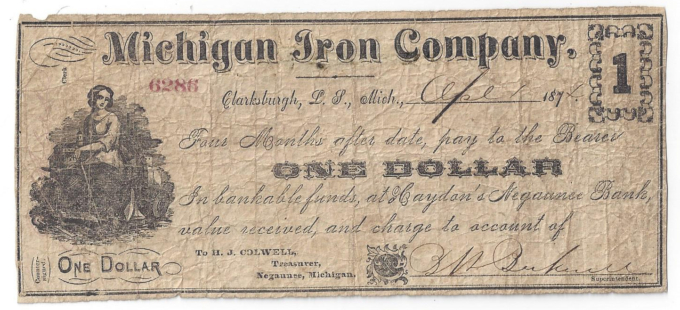 Michigan Iron Company,
1
6286
Clarksburgh, L. S., Mich., Apl 1 1874.
Four Months after date, pay to the Bearer
ONE DOLLAR
In bankable funds, at Haydon's Negaunee Bank,
value received, and charge to account of
To H. J. COLWELL,
Treasurer,
Negaunee, Michigan.
ONE DOLLAR
Superintendent.